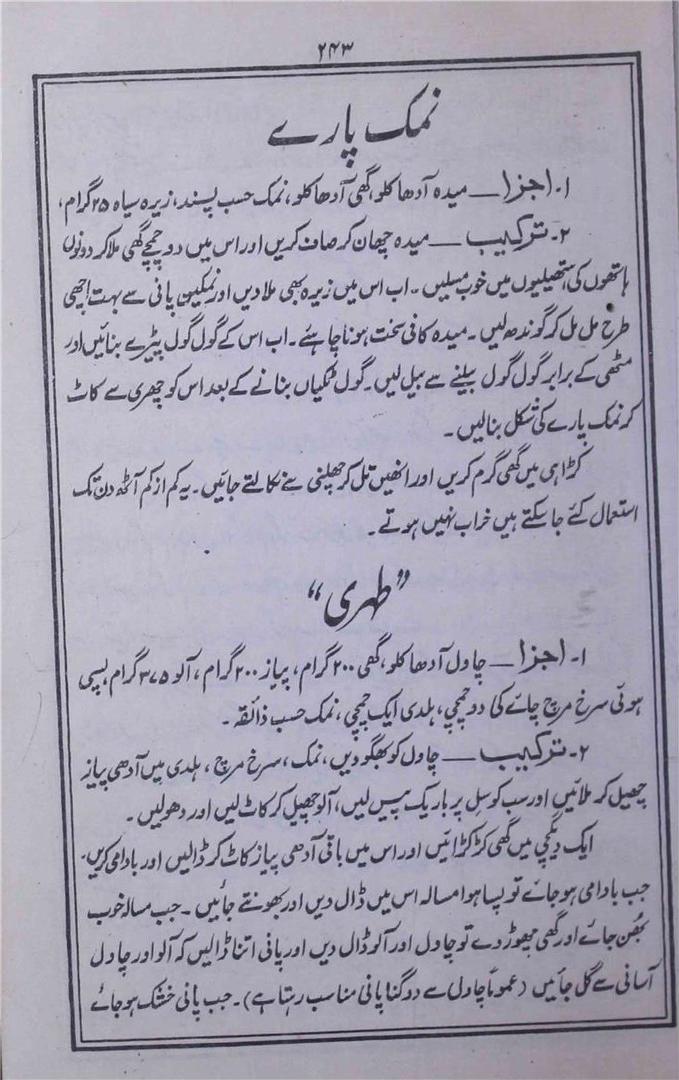 ۲۴۳
نمک پارے
۱۔ اجزا — میدہ آدھا کلو، گھی آدھا کلو، نمک حسب پسند، زیرہ سیاہ ۲۵ گرام،
۲۔ ترکیب — میدہ چھان کر صاف کریں اور اس میں دو چمچے گھی ملا کر دونوں
ہاتھوں کی ہتھیلیوں میں خوب مسلیں۔ اب اس میں زیرہ بھی ملا دیں اور نمکین پانی سے بہت اچھی
طرح مل مل کر گوندھ لیں۔ میدہ کافی سخت ہونا چاہئے۔ اب اس کے گول گول پیڑے بنائیں اور
مٹھی کے برابر گول گول بیلنے سے بیل لیں۔ گول ٹکیاں بنانے کے بعد اس کو چھری سے کاٹ
کر نمک پارے کی شکل بنالیں۔
کڑاہی میں گھی گرم کریں اور انھیں تل کر چھلنی سے نکالتے جائیں۔ یہ کم از کم آٹھ دن تک
استعمال کئے جا سکتے ہیں خراب نہیں ہوتے۔
”طہری“
۱۔ اجزا — چاول آدھا کلو، گھی ۲۰۰ گرام، پیاز ۲۰۰ گرام، آلو ۳۷۵ گرام، پسی
ہوئی سرخ مرچ چائے کی دو چمچی، ہلدی ایک چمچی، نمک حسب ذائقہ۔
۲۔ ترکیب — چاول کو بھگو دیں، نمک، سرخ مرچ، ہلدی میں آدھی پیاز
چھیل کر ملائیں اور سب کو سل پر باریک پیس لیں، آلو چھیل کر کاٹ لیں اور دھو لیں۔
ایک دیگچی میں گھی کڑکڑائیں اور اس میں باقی آدھی پیاز کاٹ کر ڈالیں اور بادامی کریں۔
جب بادامی ہو جائے تو پسا ہوا مسالہ اس میں ڈال دیں اور بھونتے جائیں۔ جب مسالہ خوب
بھُن جائے اور گھی چھوڑ دے تو چاول اور آلو ڈال دیں اور پانی اتنا ڈالیں کہ آلو اور چاول
آسانی سے گل جائیں (عموماً چاول سے دو گنا پانی مناسب رہتا ہے)۔ جب پانی خشک ہو جائے